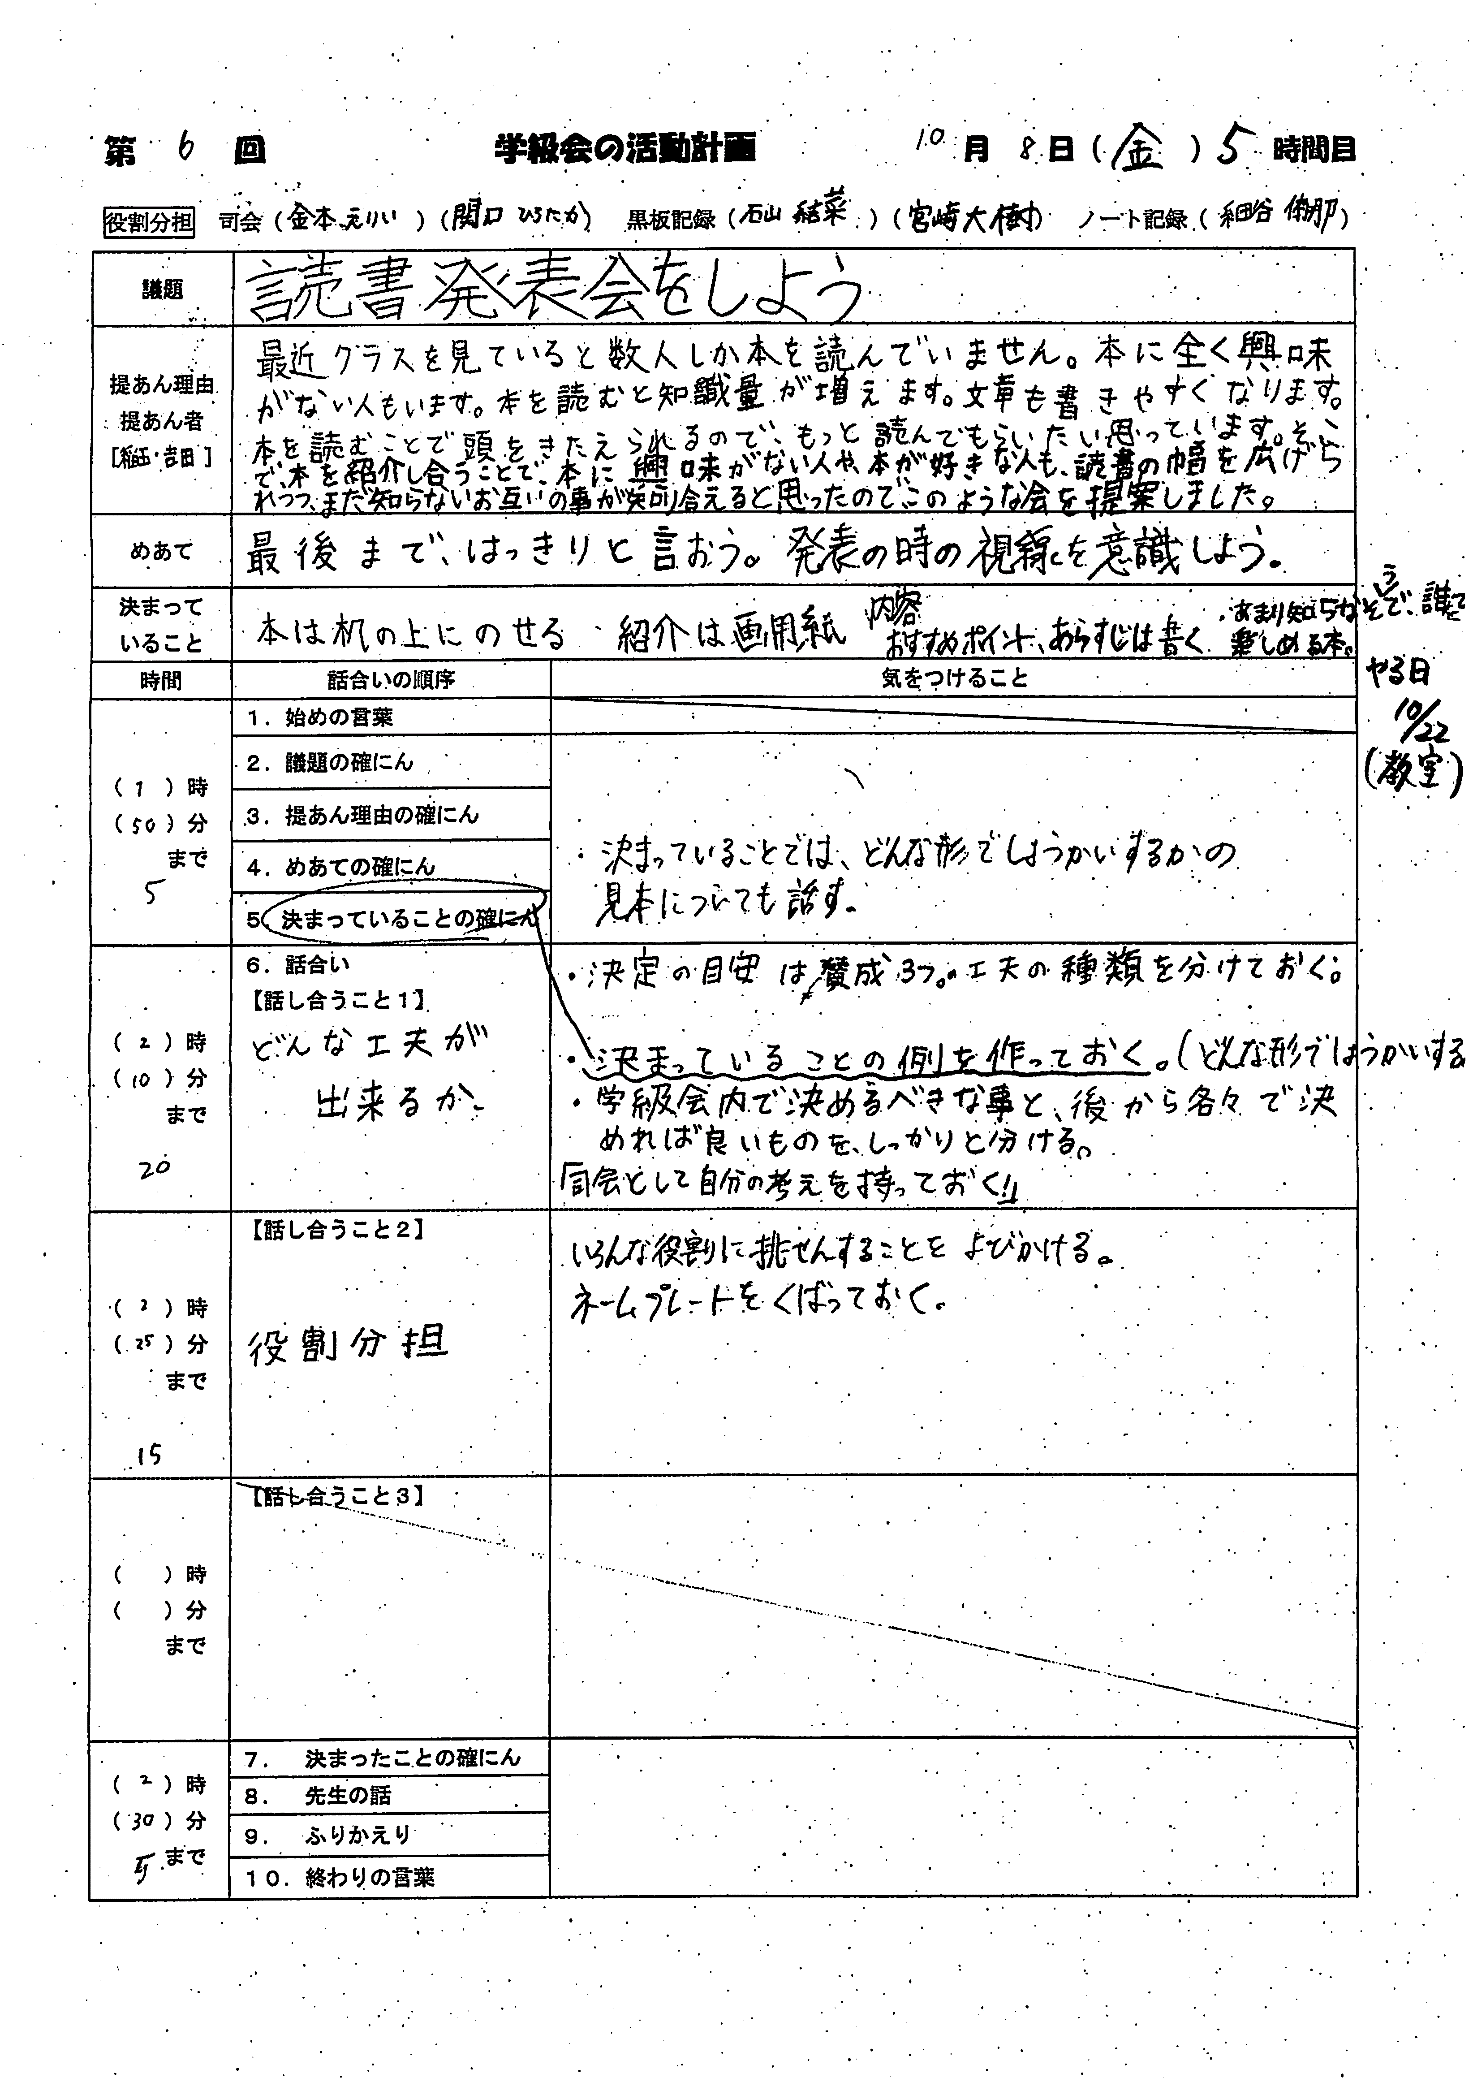 第 6 回 学級会の活動計画 10月 8日(金) 5 時間目
役割分担 司会(金本えりい)(関口ひろたか) 黒板記録(石山結菜)(宮崎大樹) ノート記録(細谷 )
議題 読書発表会をしよう
提あん理由
提あん者
最近クラスを見ていると数人しか本を読んでいません。本に全く興味
がない人もいます。本を読むと知識量が増えます。文章も書きやすくなります。
本を読むことで頭をきたえられるので、もっと読んでもらいたい思っています。そこ
で、本を紹介し合うことで、本に興味がない人や、本が好きな人も、読書の幅を広げら
れつつ、まだ知らないお互いの事が知り合えると思ったのでこのような会を提案しました。
めあて 最後まで、はっきりと言おう。発表の時の視線を意識しよう。
決まって
いること
本は机の上にのせる ・紹介は画用紙
内容
おすすめポイント、あらすじは書く
・あまり知らなそうで、誰
楽しめる本。
やる日
10/22
(教室)
時間 話合いの順序 気をつけること
(1)時
(50)分
まで
5
1.始めの言葉
2.議題の確にん
3.提あん理由の確にん
4.めあての確にん
5.決まっていることの確にん
・決まっていることでは、どんな形でしょうかいするかの
見本についても話す。
(2)時
(10)分
まで
20
6.話合い
【話し合うこと1】
どんな工夫が
出来るか。
・決定の目安は賛成3つ。工夫の種類を分けておく。
・決まっていることの例を作っておく。(どんな形でしょうかいする
・学級会内で決めるべきな事と、後から各々で決
めれば良いものを、しっかりと分ける。
「司会として自分の考えを持っておく!」
(2)時
(25)分
まで
15
【話し合うこと2】
役割分担
いろんな役割に挑せんすることをよびかける。
ネームプレートをくばっておく。
( )時
( )分
まで
【話し合うこと3】
(2)時
(30)分
まで
5
7. 決まったことの確にん
8. 先生の話
9. ふりかえり
10.終わりの言葉